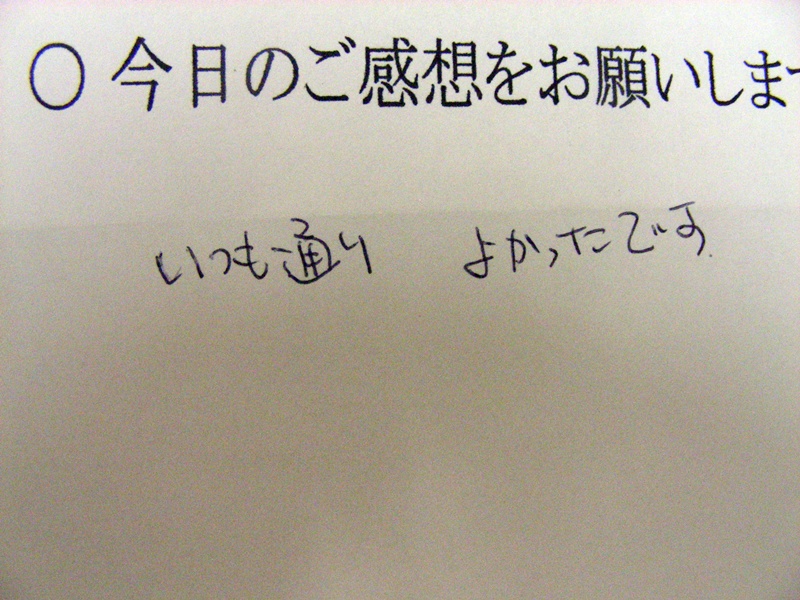 ○ 今日のご感想をお願いしま
いつも通り よかったです